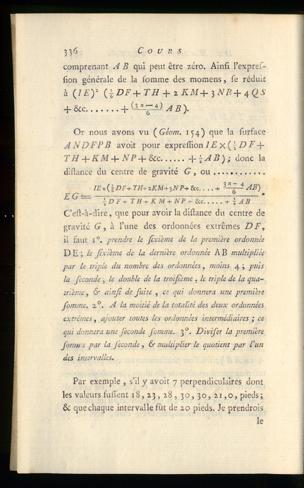 336 COURS
comprenant AB qui peut être zéro. Ainsi l'expres-
sion générale de la somme des momens, se réduit
à (IE)² (⅙ DF + TH + 2 KM + 3 NP + 4 QS
+ &c. ...... + (3n−4)/6 AB).
Or nous avons vu (Géom. 154) que la surface
ANDFPB avoit pour expression IE × (½ DF +
TH + KM + NP + &c. ..... + ½ AB); donc la
distance du centre de gravité G, ou ,...........
EG = IE × (⅙ DF + TH + 2KM + 3NP + &c. .... + (3n−4)/6 AB) / ½ DF + TH + KM + NP + &c. .... + ½ AB .
C'est-à-dire, que pour avoir la distance du centre de
gravité G, à l'une des ordonnées extrêmes DF,
il faut 1°. prendre le sixième de la première ordonnée
DE; le sixième de la dernière ordonnée AB multipliée
par le triple du nombre des ordonnées, moins 4; puis
la seconde, le double de la troisième, le triple de la qua-
trième, & ainsi de suite, ce qui donnera une première
somme. 2°. A la moitié de la totalité des deux ordonnées
extrêmes, ajouter toutes les ordonnées intermédiaires; ce
qui donnera une seconde somme. 3°. Diviser la première
somme par la seconde, & multiplier le quotient par l'un
des intervalles.
Par exemple, s'il y avoit 7 perpendiculaires dont
les valeurs fussent 18, 23, 28, 30, 30, 21, 0, pieds;
& que chaque intervalle fût de 20 pieds. Je prendrois
le